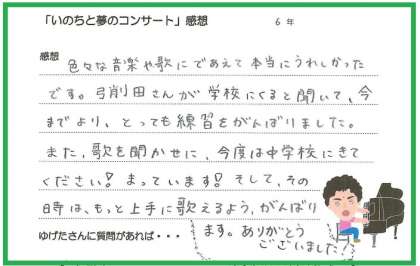 「いのちと夢のコンサート」感想 6年
感想
色々な音楽や歌にであえて本当にうれしかった
です。弓削田さんが学校にくると聞いて、今
までより、とっても練習をがんばりました。
また、歌を聞かせに、今度は中学校にきて
ください!まっています!そして、その
時は、もっと上手に歌えるよう、がんばり
ます。ありがとう
ございました!
ゆげたさんに質問があれば・・・